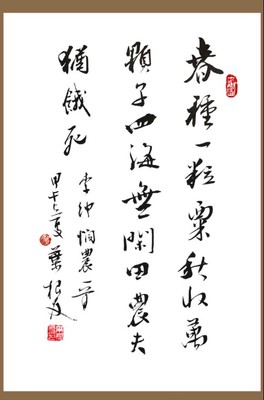 春種一粒粟秋收萬
顆子四海無閑田農夫
猶餓死
李紳憫農一首
甲午之夏葉根友